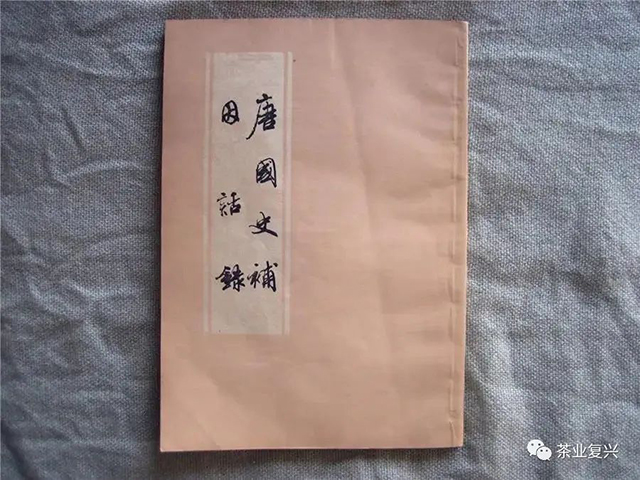 唐國史補
因話錄
茶业复兴